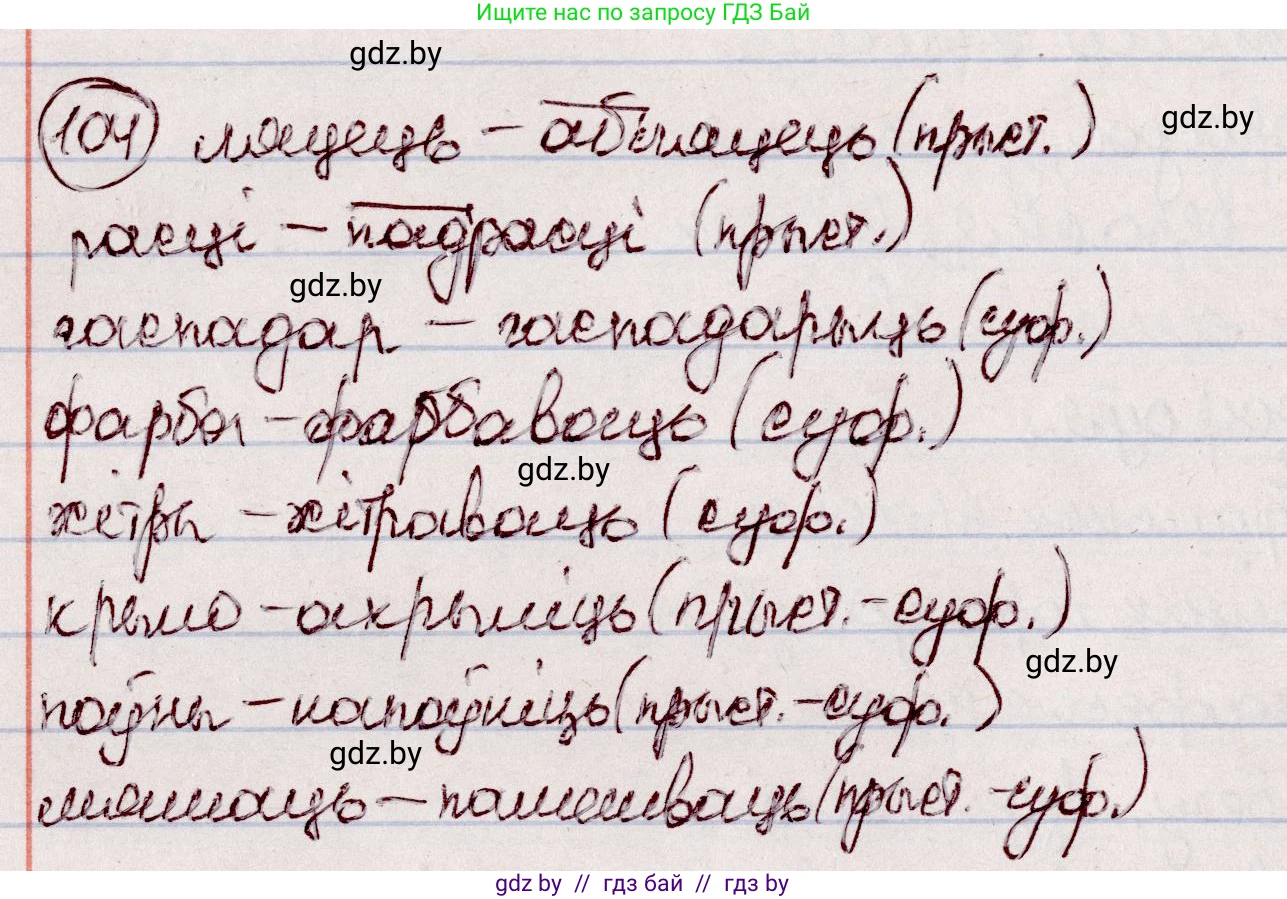 Ищите нас по запросу ГДЗ Бай
gdz.by
104 мацець - абмацець (прыст.) gdz.by
расці - падрасці (прыст.)
gdz.by
гаспадар - гаспадарыць (суф.)
фарба - фарбаваць (суф.)
gdz.by
хітры - хітраваць (суф.)
крыло - акрыліць (прыст.-суф.)
gdz.by
поўны - напоўніць (прыст.-суф.)
gdz.by
мяшаць - памешваць (прыст.-суф.)
gdz by // гдз бай // гдз by